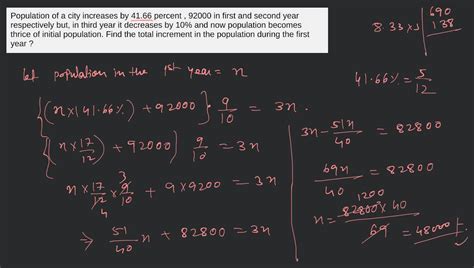 Population of a city increases by 41.66 percent , 92000 in first and second year
respectively but, in third year it decreases by 10% and now population becomes
thrice of initial population. Find the total increment in the population during the first
year ?
8.33×5
690
138
41.66% = 5/12
let population in the 1st year = n
{(n×141.66%) + 92000} 9/10 = 3n .
{(n×17/12) + 92000} 9/10 = 3n
n × 17/12 × 9/10 + 9×9200 = 3n
3
4
⇒ 51/40 n + 82800 = 3n
3n - 51n/40 = 82800
69n/40 = 82800
1200
n = 82800×40/69 = 48000